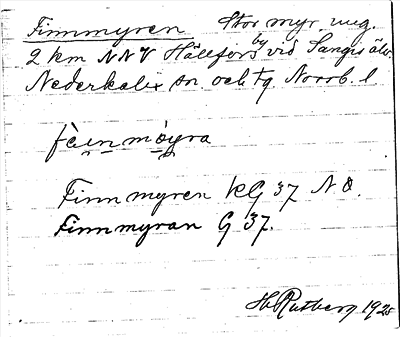 Finnmyren Stor myr ung.
2 km NNV Hällfors by vid Sangis älv.
Nederkalix sn. och tg. Norrb. l
fìnmøyra
Finnmyren KG 37 NO.
Finnmyran G 37.
H. Rutberg 1925